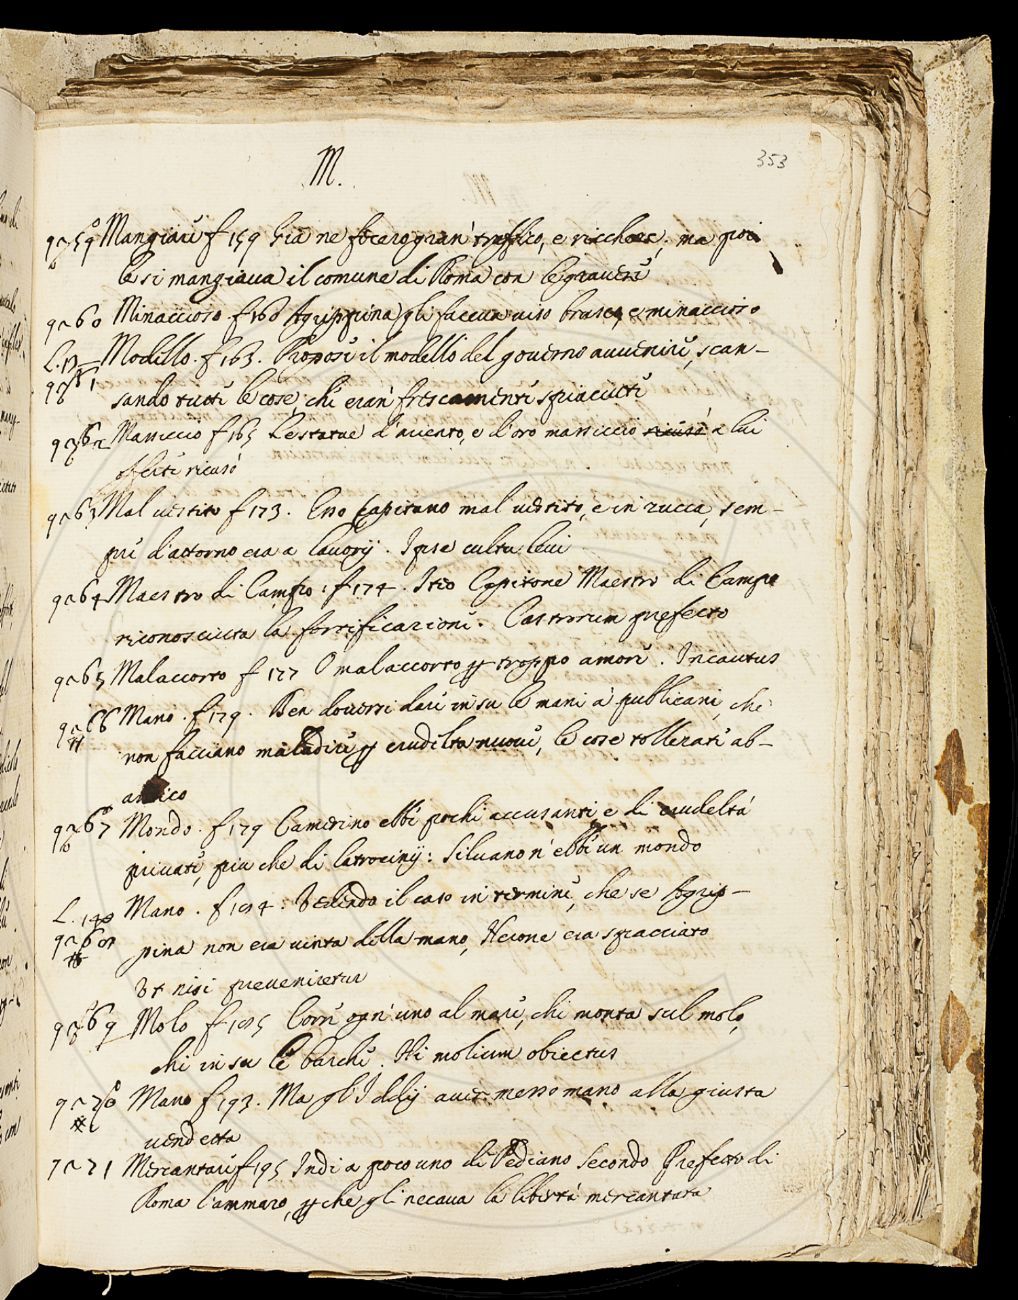 M.
353
9059 Mangiare f 159 Già ne fecero gran traffico, e ricchezze, ma poi
le si mangiava il comune di Roma con le gravezze
9060 Minaccioso. f 160 Agrippina gli faceva viso brusco, e minaccioso
Modello. f 163. Propose il modello del governo avvenire, scan-
sando tutte le cose, che eran frescamente spiaciute
Massiccio f 165 Le statue d'argento, e d'oro massiccio ricusò a lui
offerte ricusò
9063 Mal vestito f 173. Eno Capitano mal vestito, e in zucca, sem-
pre d'attorno era a lavory. Ipse cultu levi
9064 Maestro di Campo: f 174. Iteo Capitone Maestro di Campo
riconosciuta la fortificazione. Castrorum prefecto
9065 Malaccorto f 177 O malaccorto p troppo amore. Incautus
9066 Mano. f 179. Ben doversi dare in su le mani a' publicani, che
non facciano maledire p crudeltà nuove, le cose tollerate ab-
antico
9067 Mondo. f 179 Camerino ebbe pochi accusanti e di crudeltà
private, più che di latrocinij: Silvano n'ebbe un mondo
L. 140
9068 Mano. f 184: Vedendo il caso in termine, che se Agrip-
pina non era vinta della mano, Nerone era spacciato
Ut nisi preveniretur
9069 Molo f 185 Corre ogn'uno al mare, chi monta sul molo,
chi in su le barche. Hi molium obiectus
9070 Mano f 193. Ma gl'Iddij aver messo mano alla giusta
vendetta
9071 Mercantare f 195 Indi a poco uno di Pediano Secondo Prefetto di
Roma l'ammazzò, p che gli negava la libertà mercantata